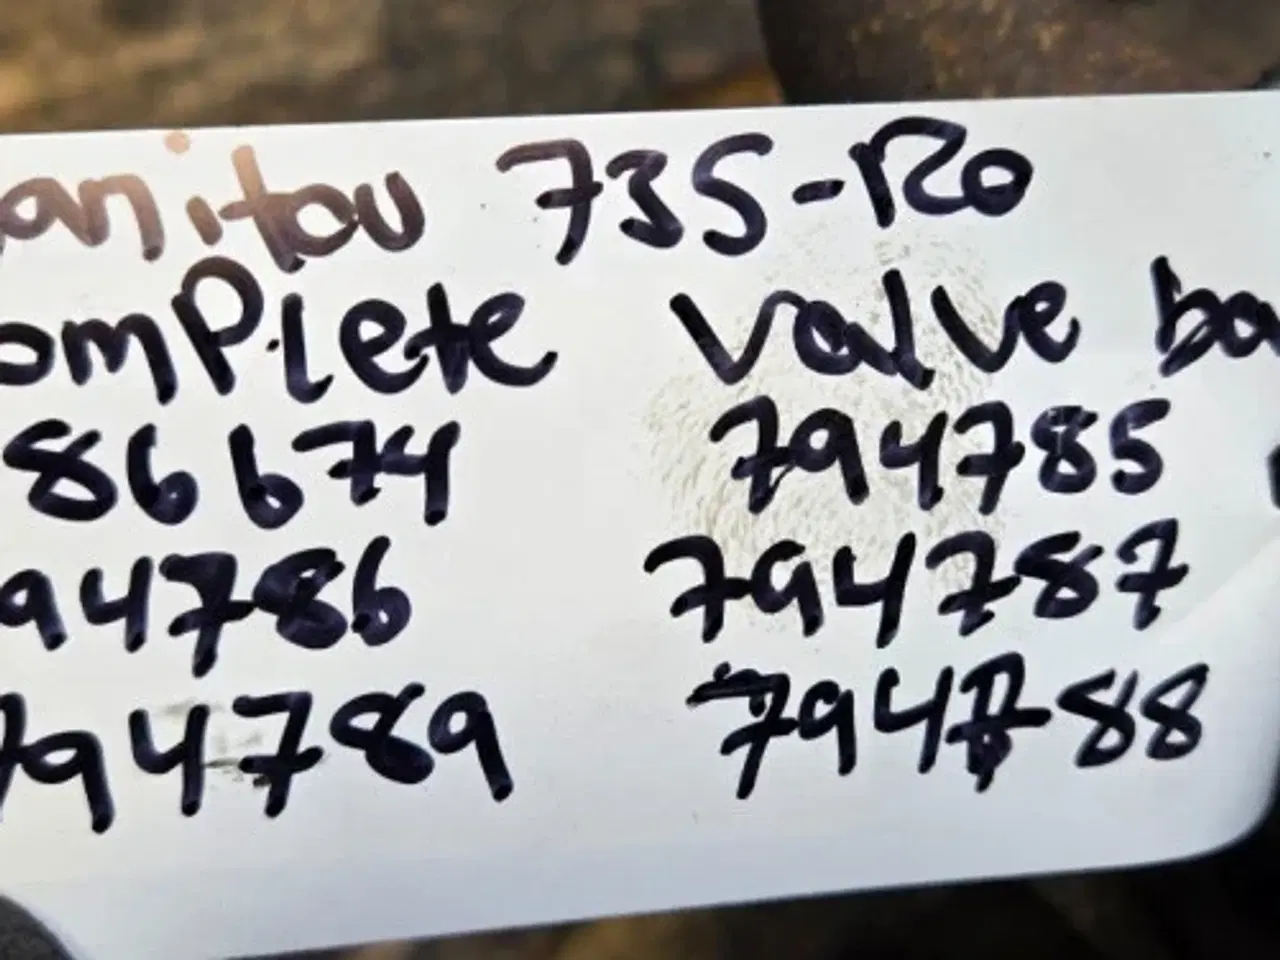 anitou 735-Ro
omplete valve ba
86674 794785
94786 794787
794789 794788